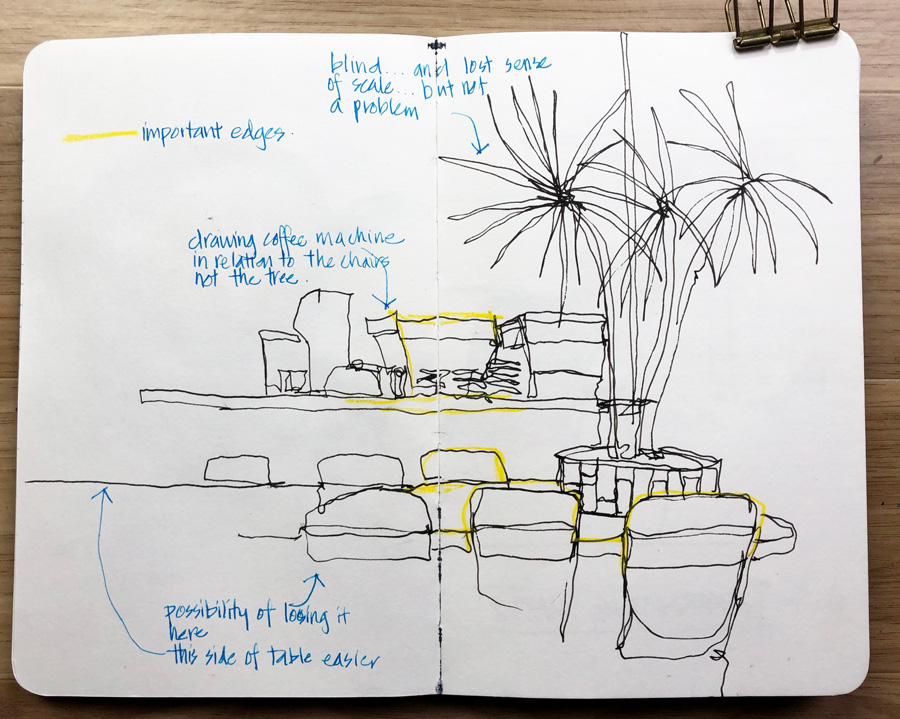 blind... and lost sense
of scale... but not
a problem
important edges.
drawing coffee machine
in relation to the chairs
not the tree.
possibility of losing it
here
this side of table easier